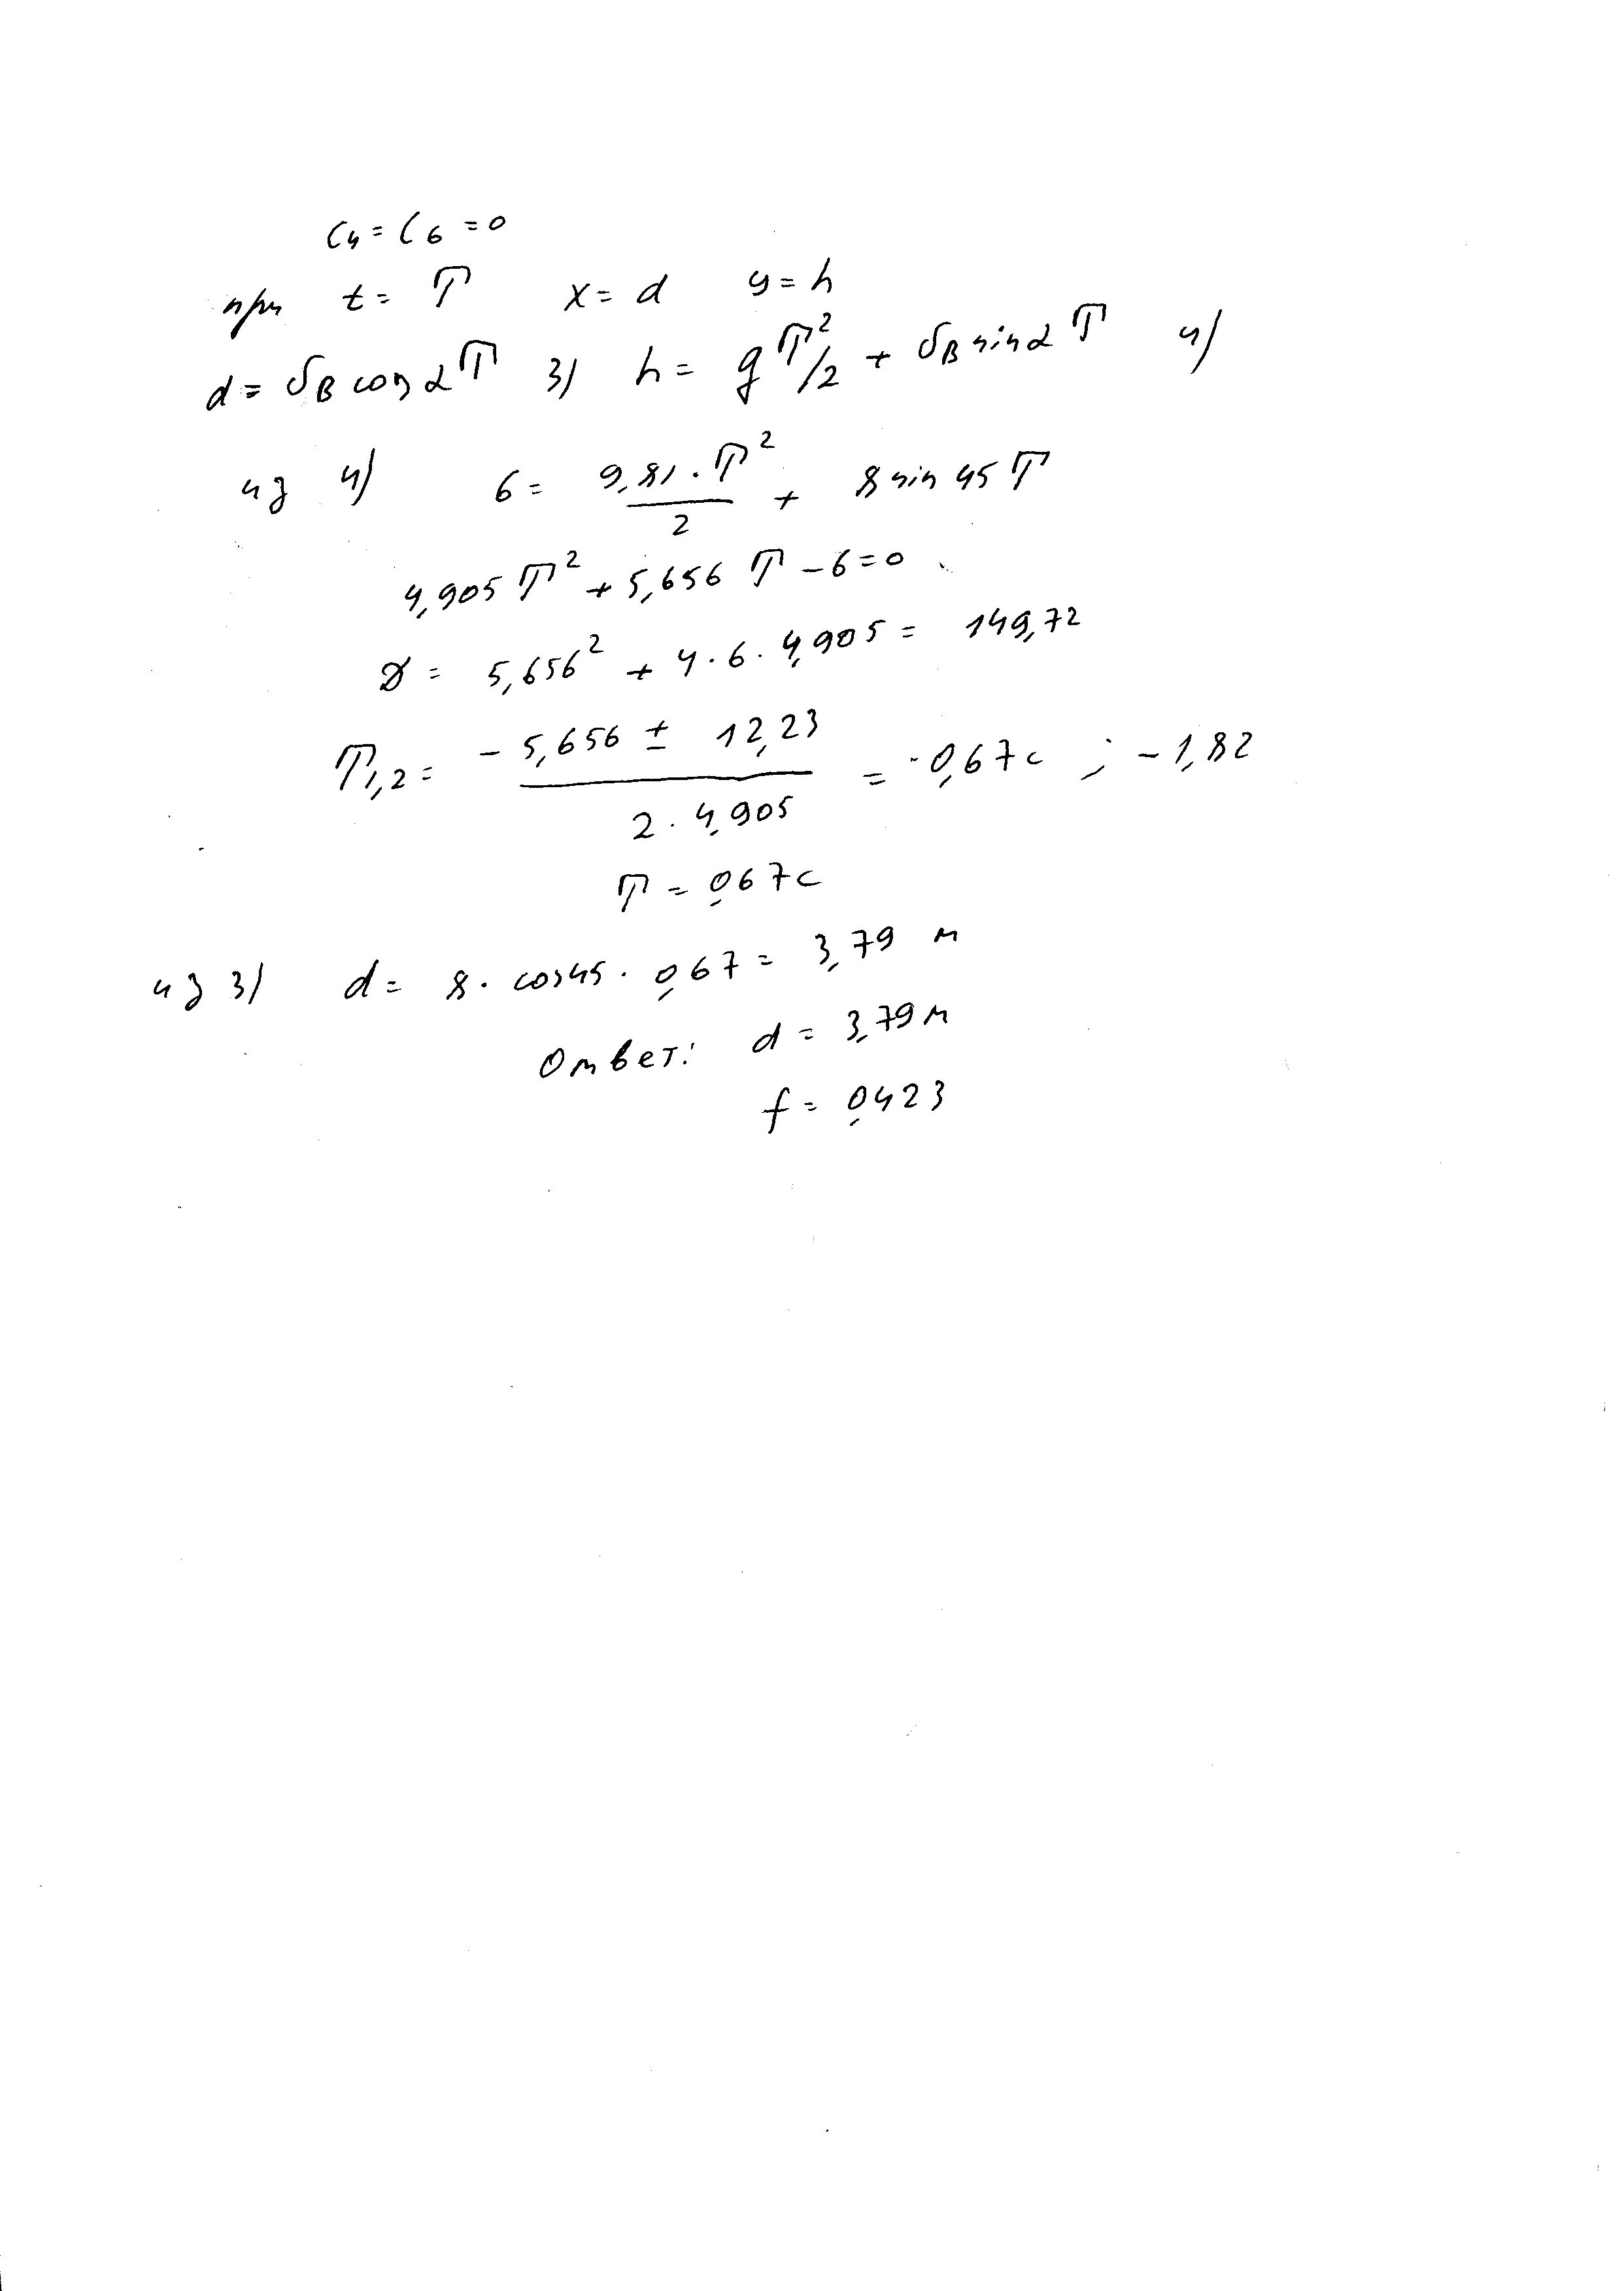 C₄ = C₆ = 0
при t = T x = d y = h
d = υ_B cos α T 3) h = g T²/2 + υ_B sin α T 4)
из 4) 6 = 9,81 · T²/2 + 8 sin 45 T
4,905 T² + 5,656 T – 6 = 0
D = 5,656² + 4 · 6 · 4,905 = 149,72
T₁,₂ = (– 5,656 ± 12,23)/(2 · 4,905) = 0,67 с ; – 1,82
T = 0,67 с
из 3) d = 8 · cos 45 · 0,67 = 3,79 м
Ответ: d = 3,79 м
f = 0,423